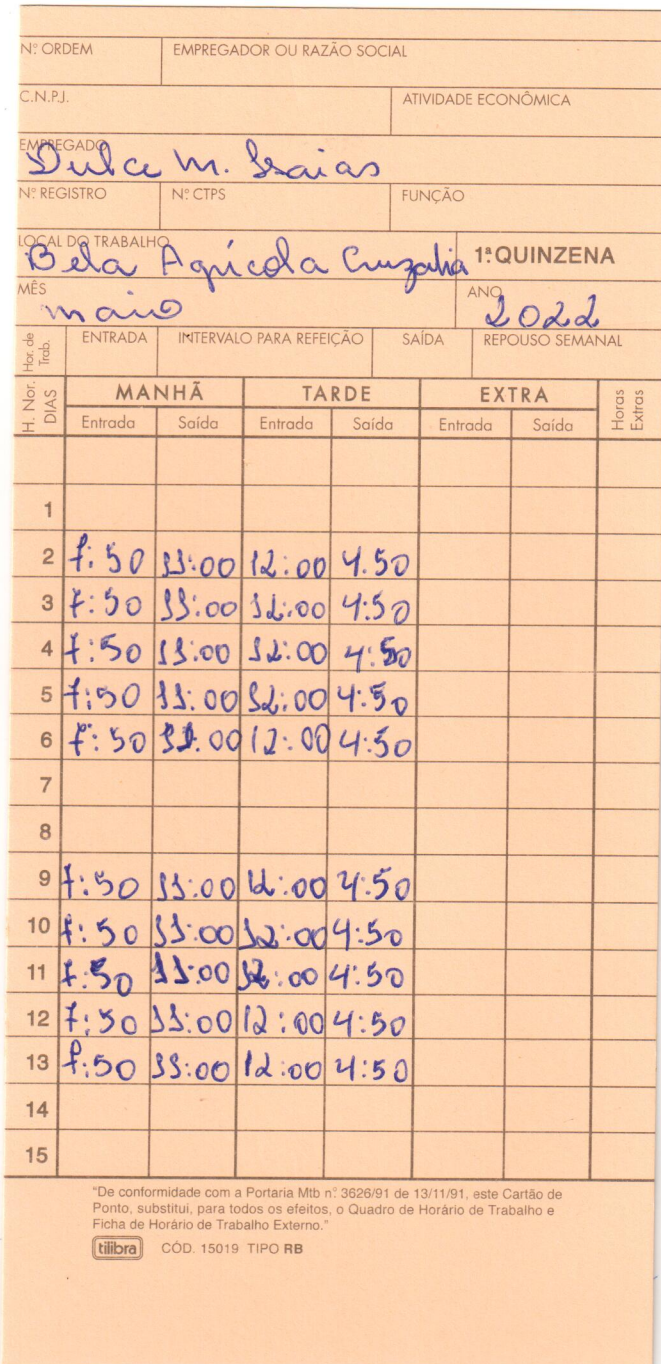 Nº ORDEM EMPREGADOR OU RAZÃO SOCIAL
C.N.P.J. ATIVIDADE ECONÔMICA
EMPREGADO
Dulce M. Isaias
Nº REGISTRO Nº CTPS FUNÇÃO
LOCAL DO TRABALHO
Bela Agrícola Cruzalia 1ª QUINZENA
MÊS ANO
maio 2022
Hor. de Trab. ENTRADA INTERVALO PARA REFEIÇÃO SAÍDA REPOUSO SEMANAL
H. Nor. DIAS MANHÃ TARDE EXTRA Horas Extras
Entrada Saída Entrada Saída Entrada Saída
1
2 7:50 11:00 12:00 4.50
3 7:50 11:00 12:00 4:50
4 7:50 11:00 12:00 4:50
5 7:50 11:00 12:00 4:50
6 7:50 11:00 12:00 4:50
7
8
9 7:50 11:00 12:00 4:50
10 7:50 11:00 12:00 4:50
11 7.50 11:00 12:00 4:50
12 7:50 11:00 12:00 4:50
13 7:50 11:00 12:00 4:50
14
15
"De conformidade com a Portaria Mtb nº 3626/91 de 13/11/91, este Cartão de
Ponto, substitui, para todos os efeitos, o Quadro de Horário de Trabalho e
Ficha de Horário de Trabalho Externo."
tilibra CÓD. 15019 TIPO RB